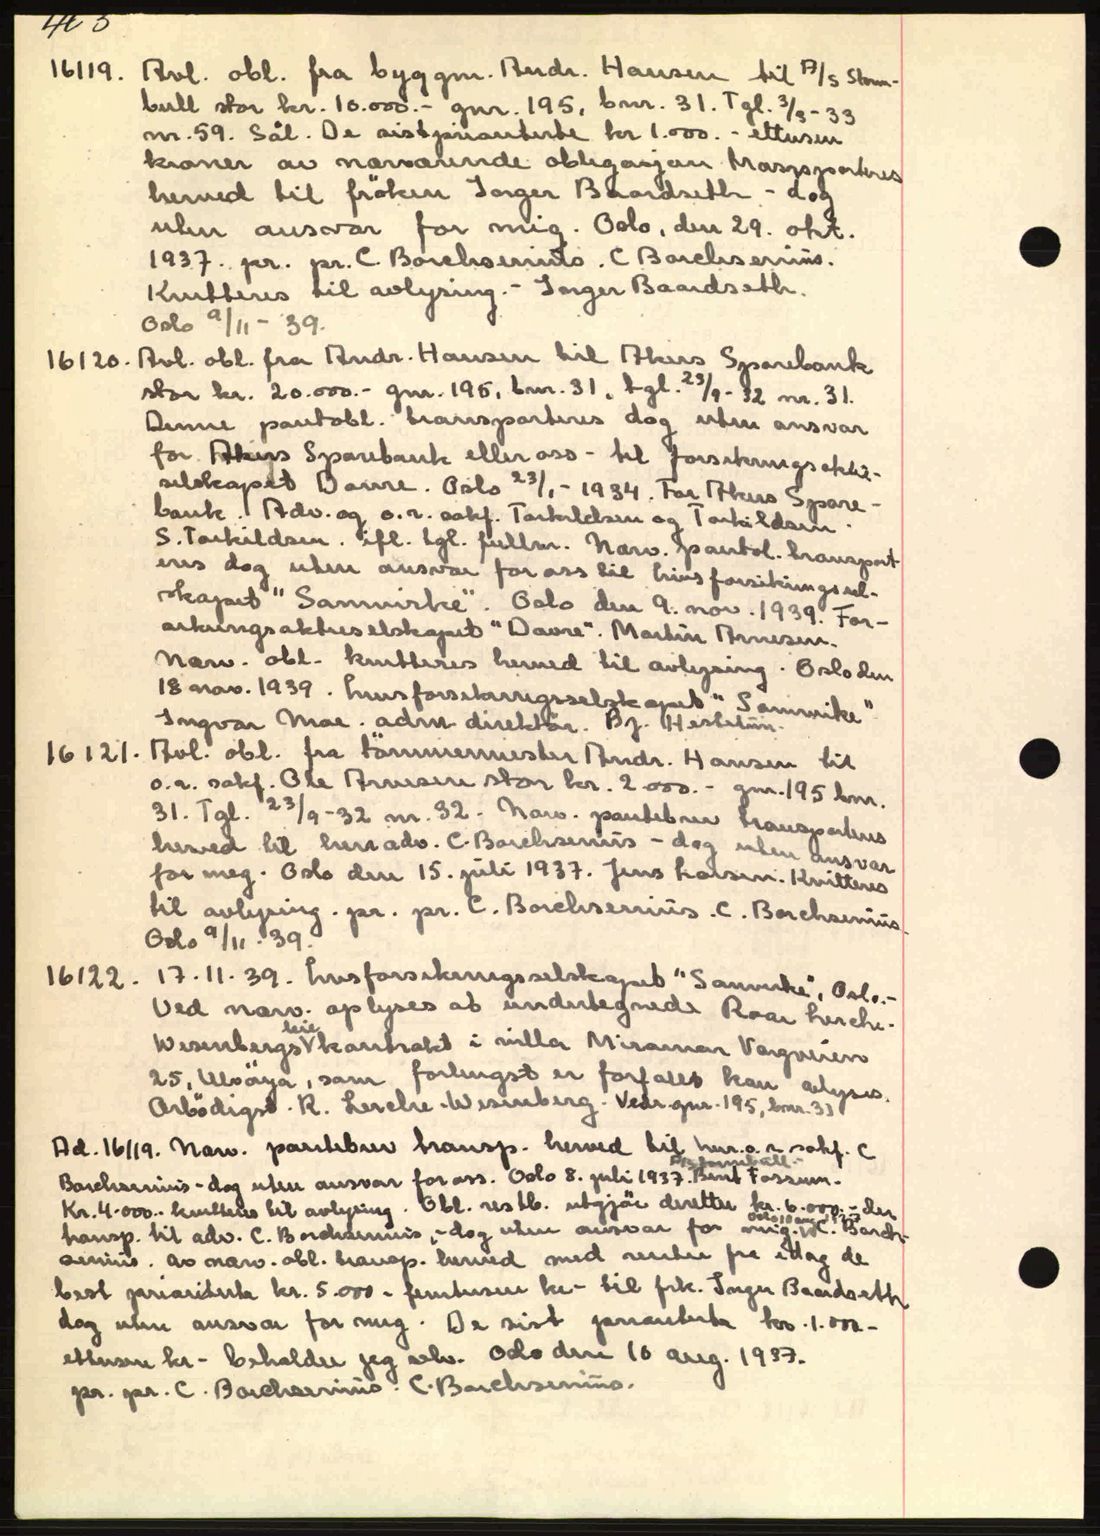 463
16119. Avl. obl. fra byggm. Andr. Hansen til A/S Storm-
bull stor kr. 10.000.- gnr. 195, bnr. 31. Tgl. 3/3-33
nr. 59. Sål. De sistprioriterte kr 1.000.- ettusen
kroner av nærværende obligasjon transporteres
herved til fröken Inger Baardseth - dog
uten ansvar for mig. Oslo, den 29. okt.
1937. pr. pr. C. Borchsenius. C Borchsenius.
Kvitteres til avlysing.- Inger Baardseth.
Oslo 9/11-39.
16120. Avl. obl. fra Andr. Hansen til Akers Sparebank
stor kr. 20.000.- gnr. 195, bnr. 31, tgl. 23/9-32 nr. 31.
Denne pantobl. transporteres dog uten ansvar
for Akers Sparebank eller oss - til forsikringsaktie-
selskapet Dovre. Oslo 23/1-1934. For Akers Spare-
bank. Adv. og o.r. sakf. Torkildsen og Torkildsen.
S. Torkildsen. ifl. tgl. fullm. Nærv. pantol. transport
eres dog uten ansvar for oss til livsforsikringssel-
skapet "Samvirke". Oslo den 9. nov. 1939. For-
sikringsaktieselskapet "Dovre". Martin Arnesen.
Nærv. obl. kvitteres herved til avlysing. Oslo den
18 nov. 1939. Livsforsikringsselskapet "Samvirke"
Ingvar Moe. adm direktör. Bj.
16121. Avl. obl. fra tömmermester Andr. Hansen til
o.r. sakf. Ole Arnesen stor kr. 2.000.- gnr. 195 bnr.
31. Tgl. 23/9-32 nr. 32. Nærv. pantebrev transporteres
herved til herr adv. C. Borchsenius - dog uten ansvar
for meg. Oslo den 15. juli 1937. Jens Larsen. Kvitteres
til avlysing. pr. pr. C. Borchsenius. C. Borchsenius.
Oslo 9/11-39.
16122. 17.11.39. Livsforsikringsselskapet "Samvirke", Oslo.-
Ved nærv. oplyses at undertegnede Roar Lerche-
Wesenbergs leiekontrakt i villa Miramar Vargveien
25, Ulvöya, som forlengst er forfalt kan avlyses.
Ærbödigst. R. Lerche-Wesenberg. Vedr. gnr. 195, bnr. 33
Ad. 16119. Nærv. pantebrev transp. herved til herr o.r. sakf. C
Borchsenius - dog uten ansvar for oss. Oslo 8. juli 1937. A/S Stormbull. Bent Fossum.
Kr. 4.000.- kvitteres til avlysing. Obl. restb. utgjör deretter kr. 6.000.- der
transp. til adv. C. Borchsenius,- dog uten ansvar for mig. Oslo 10 aug 1937. C. Borch-
senius. Av nærv. obl. transp. herved med renter fra idag de
best prioriterte kr. 5.000.- femtusen kr- til frk. Inger Baardseth
dog uten ansvar for mig. De sist prioriterte kr. 1.000-
ettusen kr- beholder jeg selv. Oslo den 10 aug. 1937.
pr. pr. C. Borchsenius. C. Borchsenius.